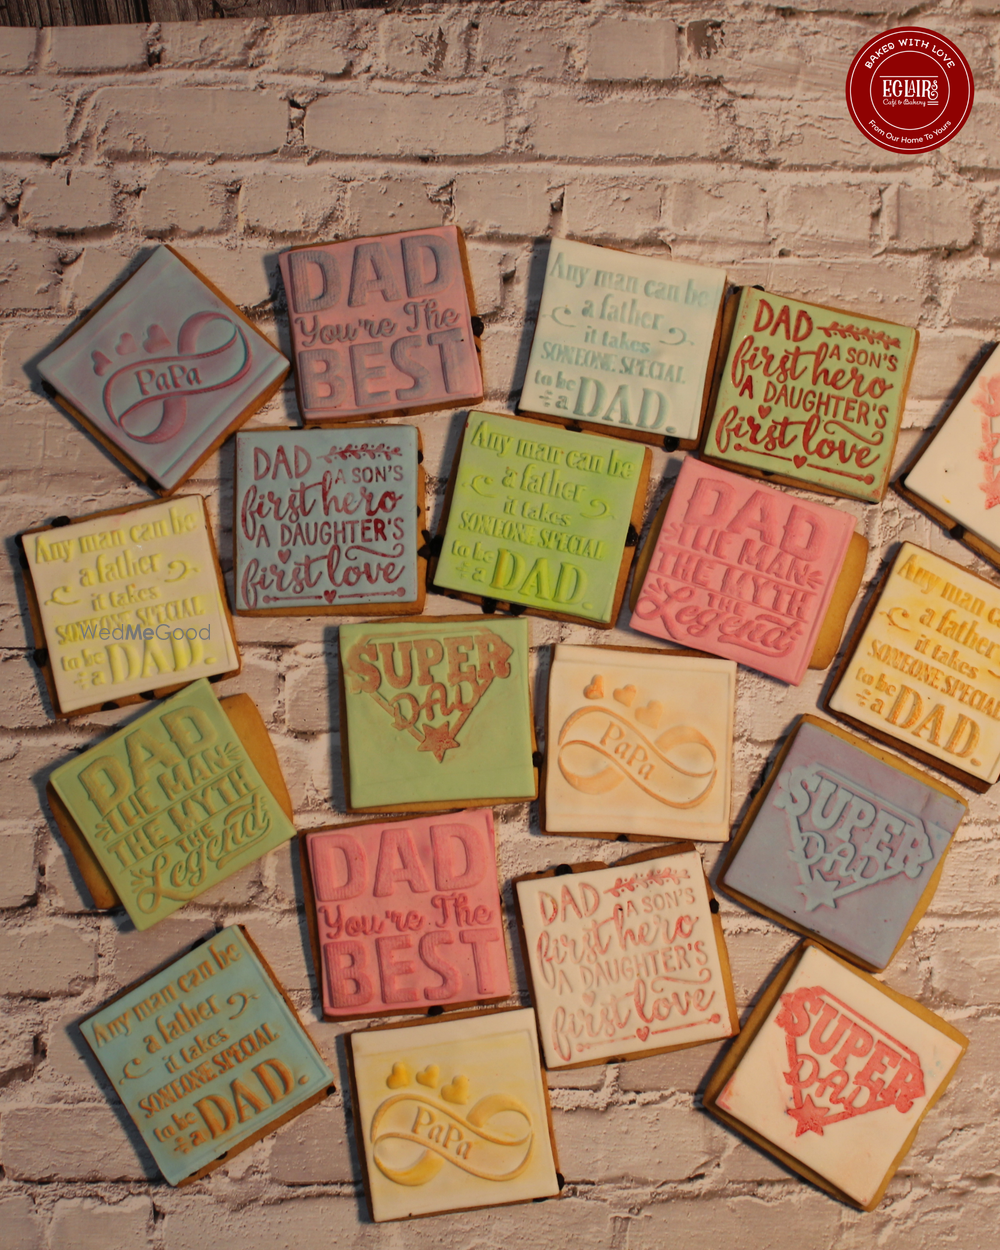 BAKED WITH LOVE
ECLAIRS
Café & Bakery
From Our Home To Yours
PaPa
DAD
You're The
BEST
Any man can be
a father
it takes
SOMEONE SPECIAL
to be
a DAD.
DAD
A SON'S
first hero
A DAUGHTER'S
first love
DAD
A SON'S
first hero
A DAUGHTER'S
first love
Any man can be
a father
it takes
SOMEONE SPECIAL
to be
a DAD.
DAD
THE MAN
THE MYTH
THE
Legend
Any man can be
a father
it takes
SOMEONE SPECIAL
to be
a DAD.
WedMeGood
Any man can
a father
it takes
SOMEONE SPECIAL
to be
a DAD.
SUPER
DAD
PaPa
DAD
THE MAN
THE MYTH
THE
Legend
SUPER
DAD
DAD
You're The
BEST
DAD
A SON'S
first hero
A DAUGHTER'S
first love
Any man can be
a father
it takes
SOMEONE SPECIAL
to be
a DAD.
SUPER
DAD
PaPa